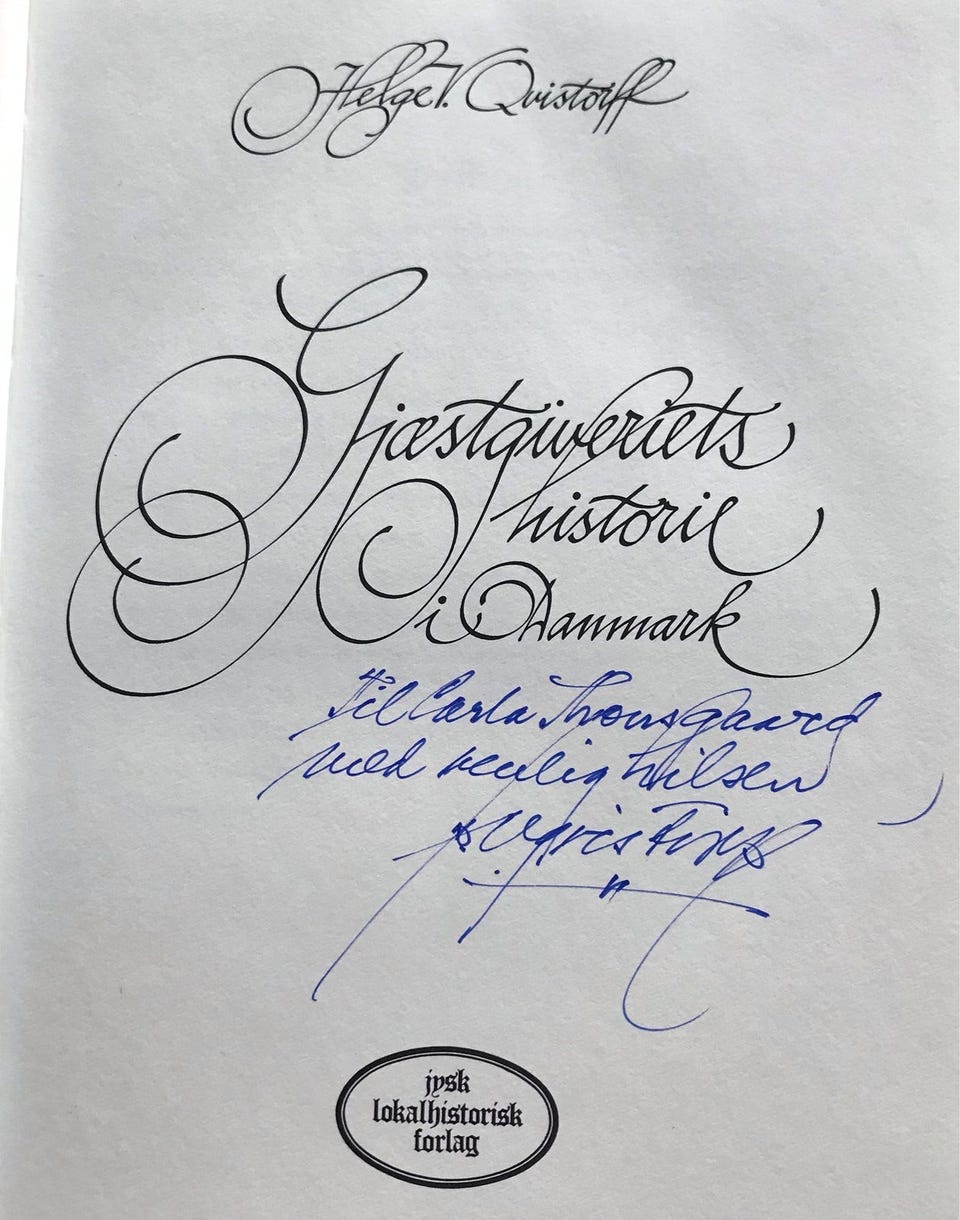 Helge V. Qvistorff
Gjæstgiveriets
historie
i Danmark
til Carla Thomsgaard
med venlig hilsen
Qvistorff
jysk
lokalhistorisk
forlag